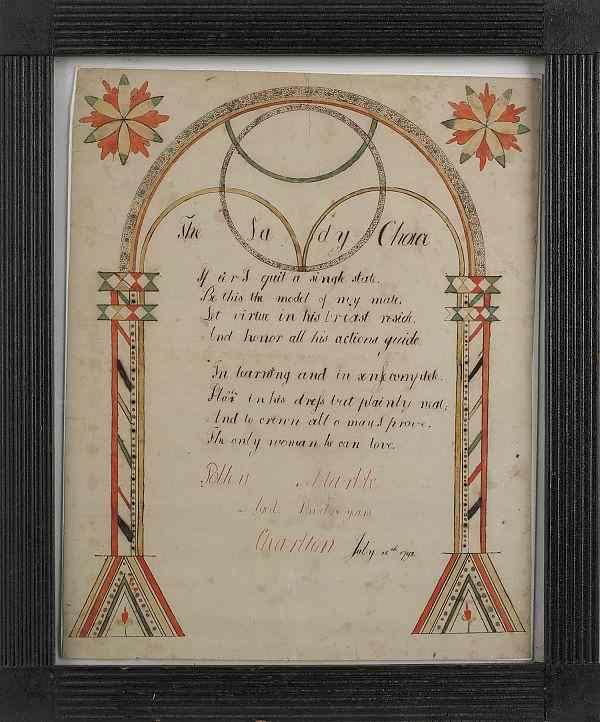 The Lady Choice
If ere I quit a single state.
Be this the model of my mate.
Let virtue in his breast reside.
And honor all his actions guide
In learning and in sense complete.
in his dress but plainly neat,
And to crown all o may I prove.
The only woman he can love.
Marble
years
Charlton July 10th 1792